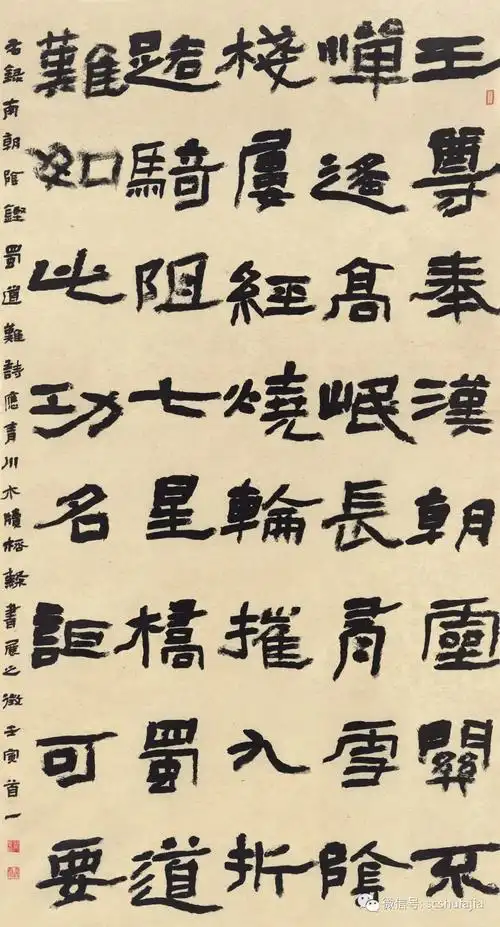 王尊奉漢朝靈關不
憚遙高岷長有雪陰
棧屢經燒輪摧九折
路騎阻七星橋蜀道
難如此功名詎可要
右錄南朝陰鏗蜀道難詩應青川木牘杯隸書展之徵壬寅首一
微信号: scshufajia